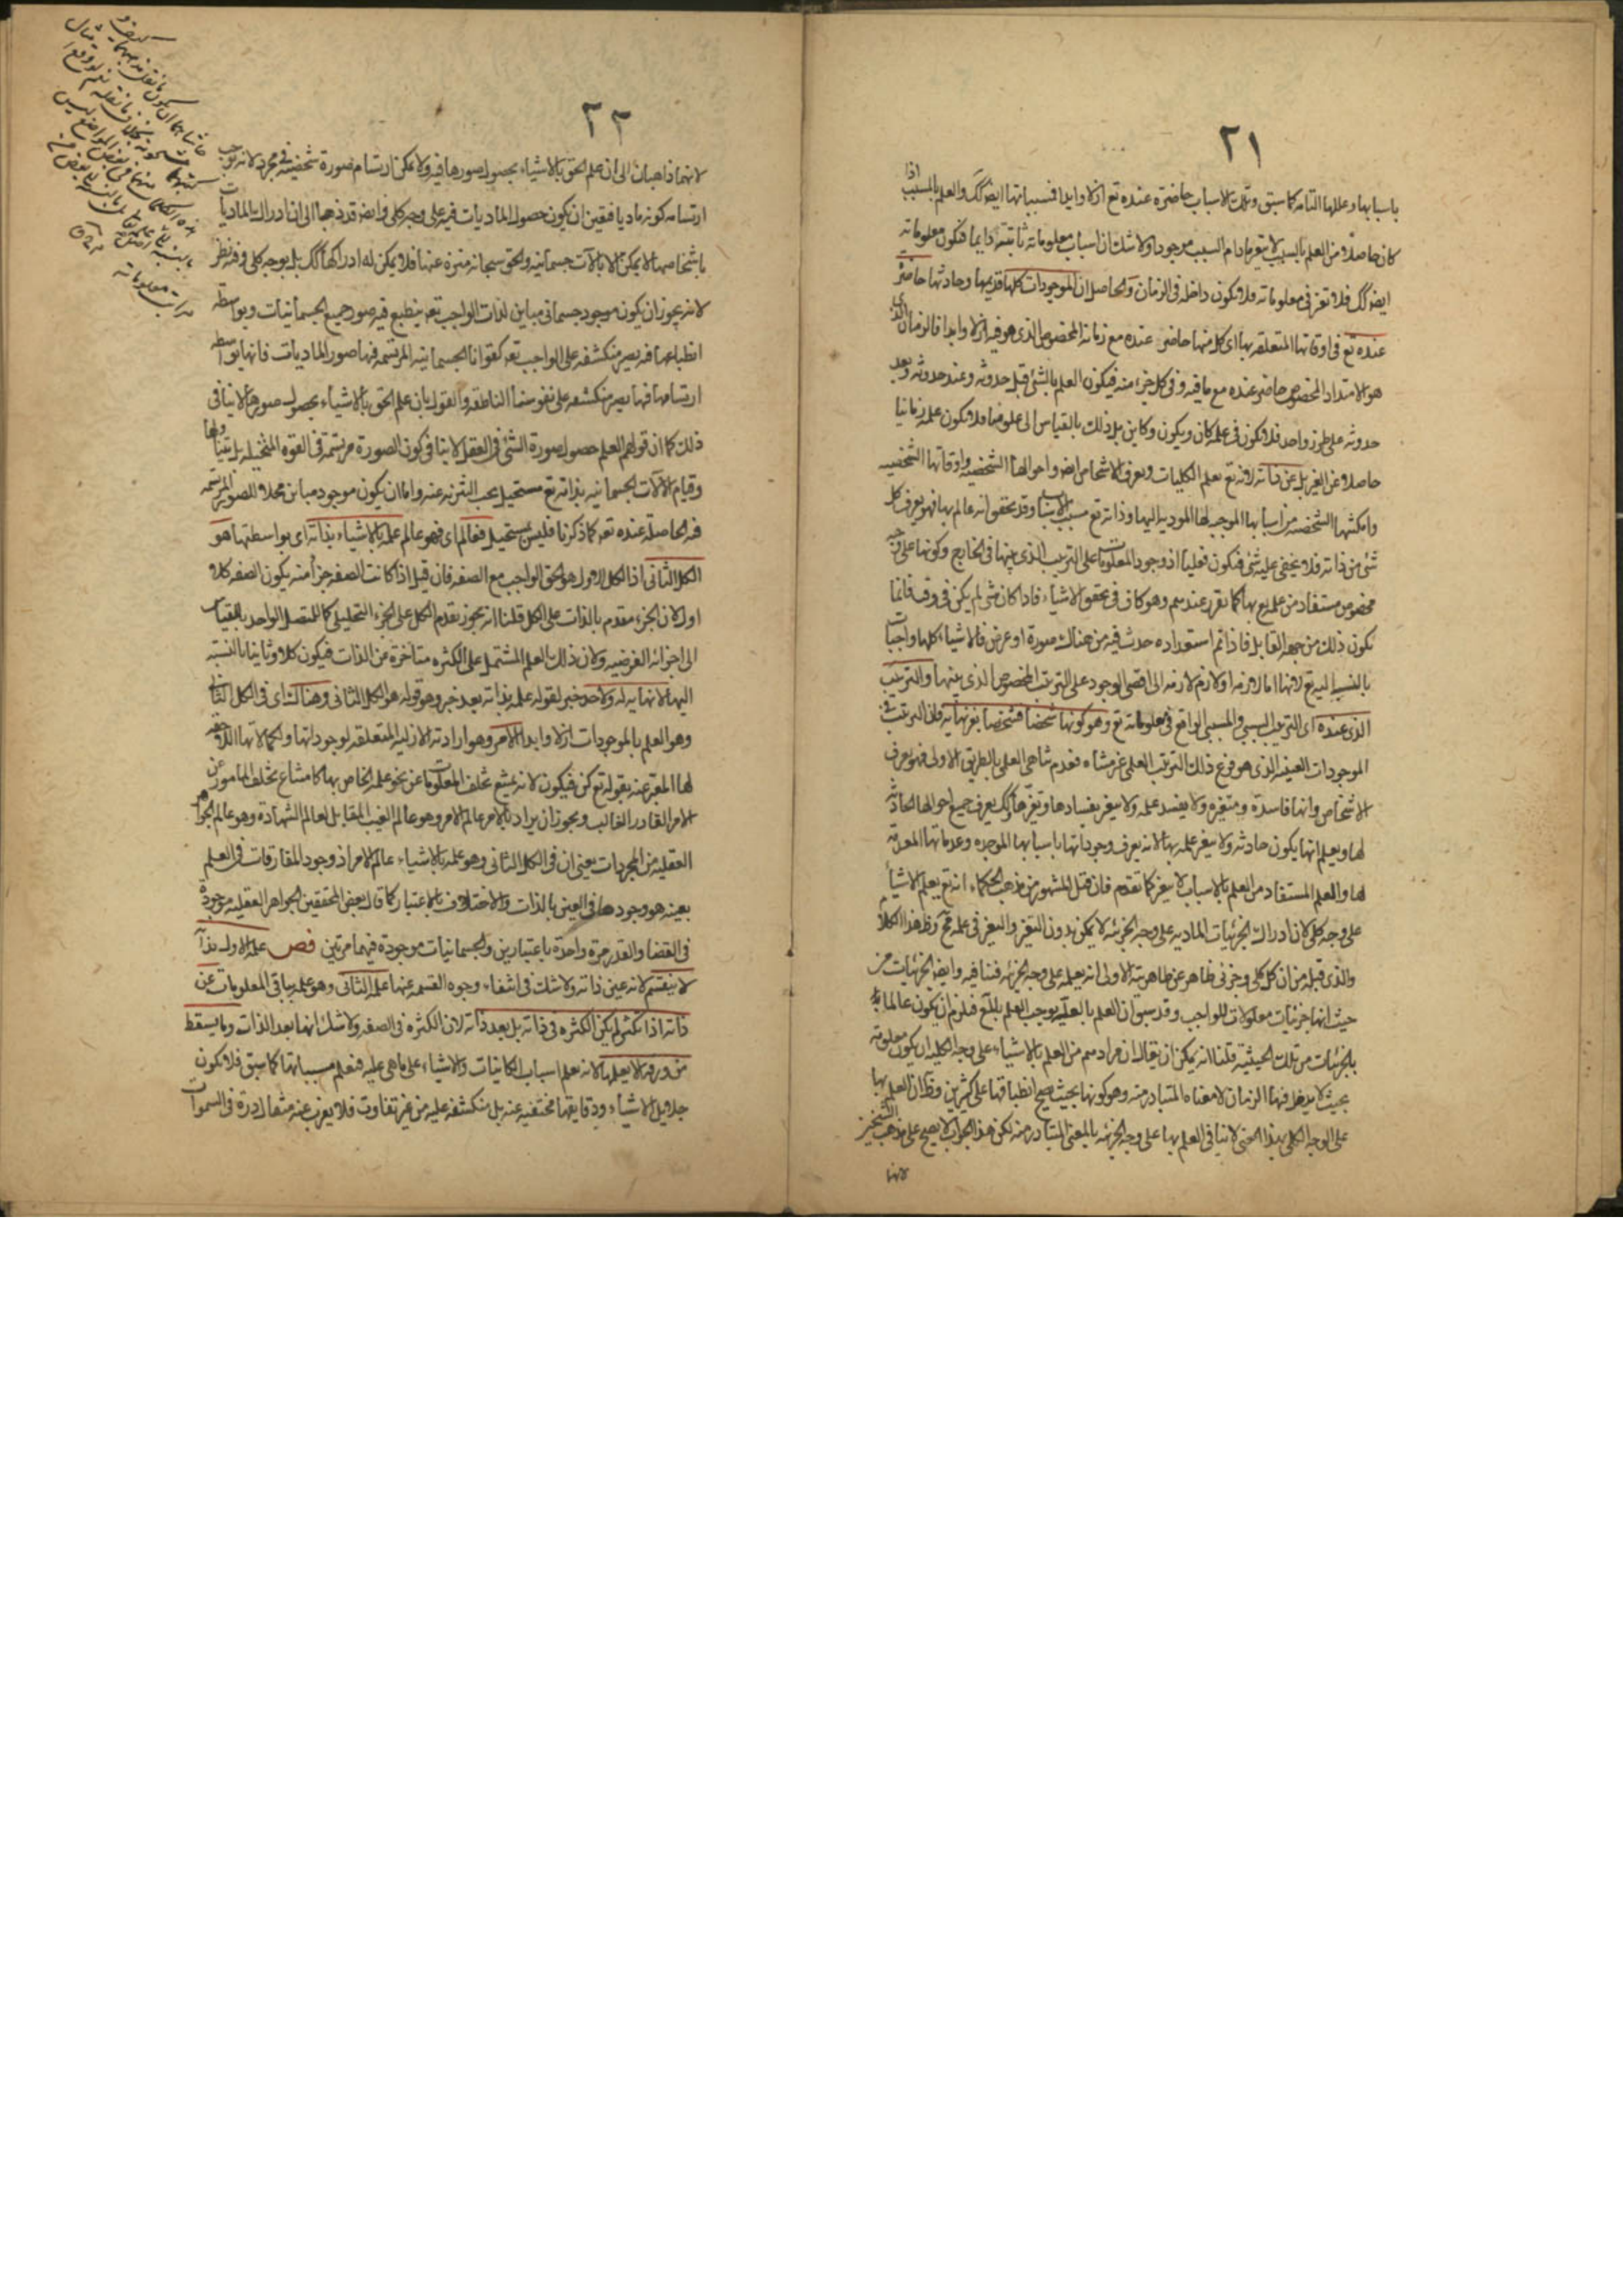 ٢١
باسبابها وعللها التامه كما سبق وتلك الاسباب حاضرة عنده تع ازلا وابدا فمسبباتها ايضا كك والعلم بالمسبب اذا
كان حاصلا من العلم بالسبب لا يتغير مادام السبب موجودا ولا شك ان اسباب معلوماته ثابتة دايما فتكون معلوماته
ايضا كك فلا تغير فى معلوماته فلا تكون داخله فى الزمان والحاصل ان الموجودات كلها قديمها وحادثها حاضر
عنده تع فى اوقاتها المتعلقه بها اى كل منها حاضر عنده مع زمانه المخصوص الذى هو فيه ازلا وابدا فالزمان الذى
هو الامتداد المخصوص حاضر عنده مع ما فيه وفى كل جزء منه فيكون العلم بالشئ قبل حدوثه وعند حدوثه وبعد
حدوثه على طرز واحد فلا يكون فى علمه كان ويكون وكاين بل ذلك بالقياس الى علومنا فلا يكون علمه زمانيا
حاصلا عن الغير بل عن ذاته لانه تع يعلم الكليات ويعرف الاشخاص ايضا واحوالها الشخصيه واوقاتها الشخصيه
وامكنتها الشخصه من اسبابها الموجبه لها الموديه اليها وذاته تع مسبب الاسباب وقد تحقق انه عالم بها فهو يعرف كل
شئ من ذاته فلا يخفى عليه شئ فتكون فعليا اذ وجود المعلومات على الترتيب الذى بينها فى الخارج وكونها على وجه
مخصوص مستفاد من علمه تع بها كما تقرر عندهم وهو كاف فى تحقق الاشياء فاذا كان شئ لم يكن فى وقت فانما
يكون ذلك من جهه القابل فاذا تم استعداده حدث فيه من هناك صورة او عرض فالاشياء كلها واجبات
بالنسبه اليه تع لانها اما لازمه او لازم لازمه الى اقصى الوجود على الترتيب المخصوص الذى بينها والترتيب
الذى عنده اى الترتيب السببى والمسببى الواقع فى معلوماته تع وهو كونها شخصا فشخصا بغير نهايه فان الترتيب فى
الموجودات العينيه الذى هو فرع ذلك الترتيب العلمى غير متناه فعدم تناهى العلمى بالطريق الاولى فهو يعرف
الاشخاص وانها فاسدة ومتغيره ولا يفسد علمه ولا يتغير بفسادها وتغيرها وكك يعرف جميع احوالها الحادثه
لها ويعلم انها يكون حادثه ولا يتغير علمه بها لانه يعرف وجوداتها باسبابها الموجده وعدماتها المعدمه
لها والعلم المستفاد من العلم بالاسباب لا يتغير كما تقدم فان قيل المشهور من مذهب الحكماء انه تع يعلم الاشياء
على وجه كلى لان ادراك الجزئيات الماديه على وجه الجزئيه لا يمكن بدون التغير والتغير فى علمه مح وظ هذا الكلام
والذى قبله من ان كل كلى وجزئى ظاهر عن ظاهريته الاولى انه يعلمه على وجه الجزئيه فتنافيه وايضا الجزئيات من
حيث انها جزئيات معلولات للواجب وقد سبق ان العلم بالعله يوجب العلم بالمع فلزم ان يكون عالما
بالجزئيات من تلك الحيثية قلنا انه يمكن ان يقال ان مرادهم من العلم بالاشياء على وجه الكليه ان يكون معلومه
بحيث لا يدخل فيها الزمان لا معناه المتبادر منه وهو كونها بحيث يصح انطباقها على كثيرين وظ ان العلم بها
على الوجه الكلى بهذا المعنى لا ينافى العلم بها على وجه الجزئيه بالمعنى المتبادر منه لكن هذا الجواب لا يصح على مذهب الشيخين
لانهما
٢٢
لانهما ذاهبان الى ان علم الحق بالاشياء بحصول صورها فيه ولا يمكن ارتسام صورة شخصيه فى مجرد لانه يوجب
ارتسامه كونه ماديا فتعين ان يكون حصول الماديات فيه على وجه كلى وايضا قد ذهبا الى ان ادراك الماديات
باشخاصها لا يمكن الا بالآلات جسمانيه والحق سبحانه منزه عنها فلا يمكن له ادراكها كك بل بوجه كلى وفيه نظر
لانه يجوز ان يكون موجود جسمانى مباين لذات الواجب تع ينطبع فيه صور جميع الجسمانيات وبواسطه
انطباعها فيه يصير منكشفه على الواجب تع كقوانا الجسمانيه المرتسمه فيها صور الماديات فانها بواسطه
ارتسامها فيها يصير منكشفه على نفوسنا الناطقه والقول بان علم الحق بالاشياء بحصول صورها لا ينافى
ذلك كما ان قولهم العلم حصول صورة الشئ فى العقل لا ينافى كون الصورة مرتسمة فى القوه المتخيله بل يتناولها
وقيام الآلات الجسمانيه بذاته تع مستحيل يجب التنزيه عنه واما ان يكون موجود مباين محلا للصور المرتسمه
فيه الحاصلة عنده تع كما ذكرنا فليس بمستحيل فعالم اى فهو عالم علمه بالاشياء بذاته اى بواسطتها هو
الكل الثانى اذ الكل الاول هو الحق الواجب مع الصفه فان قيل اذا كانت الصفه جزأ منه يكون الصفه كلا
اولا لان الجزء مقدم بالذات على الكل قلنا انه يجوز تقدم الكل على الجزء التحليلى كالمتصل الواحد بالقياس
الى اجزائه الفرضيه ولان ذلك العلم المشتمل على الكثره متاخرة عن الذات فيكون كلا وثانيا بالنسبه
اليها لا نهايه له ولا حد خبر لقوله علمه بذاته بعد خبر وهو قوله هو الكل الثانى وهناك اى فى الكل الثانى
وهو العلم بالموجودات ازلا وابدا الامر وهو ارادته الازليه المتعلقه لوجوداتها وكمالاتها اللاحقه
لها المعبر عنه بقوله تع كن فيكون لانه يمتنع تخلف المعلومات عن نحو علمه الخاص بها كامتناع تخلف المامور عن
الامر القادر الغالب ويجوز ان يراد بالامر عالم الامر وهو عالم الغيب المقابل لعالم الشهادة وهو عالم الجواهر
العقليه من المجردات يعنى ان فى الكل الثانى وهو علمه بالاشياء عالم الامر اذ وجود المفارقات فى العلم
بعينه هو وجودها فى العين بالذات والاختلاف بالاعتبار كما قال بعض المحققين الجواهر العقليه موجودة
فى القضا والقدر مرة واحدة باعتبارين والجسمانيات موجودة فيهما مرتين فص علمه الاول بذاته
لا ينقسم لانه عين ذاته ولا شك فى انتفاء وجوه القسمه عنها علمه الثانى وهو علمه بباقى المعلومات عن
ذاته اذا تكثر لم يكن الكثره فى ذاته بل بعد ذاته لان الكثره فى الصفه ولا شك انها بعد الذات وما يسقط
من ورقه الا يعلمها لانه يعلم اسباب الكائنات والاشياء على ما هى عليه فيعلم مسبباتها كما سبق فلا تكون
جلايل الاشياء ودقايقها مختفيه عنه بل منكشفه عليه من غير تفاوت فلا يعزب عنه مثقال ذرة فى السموات